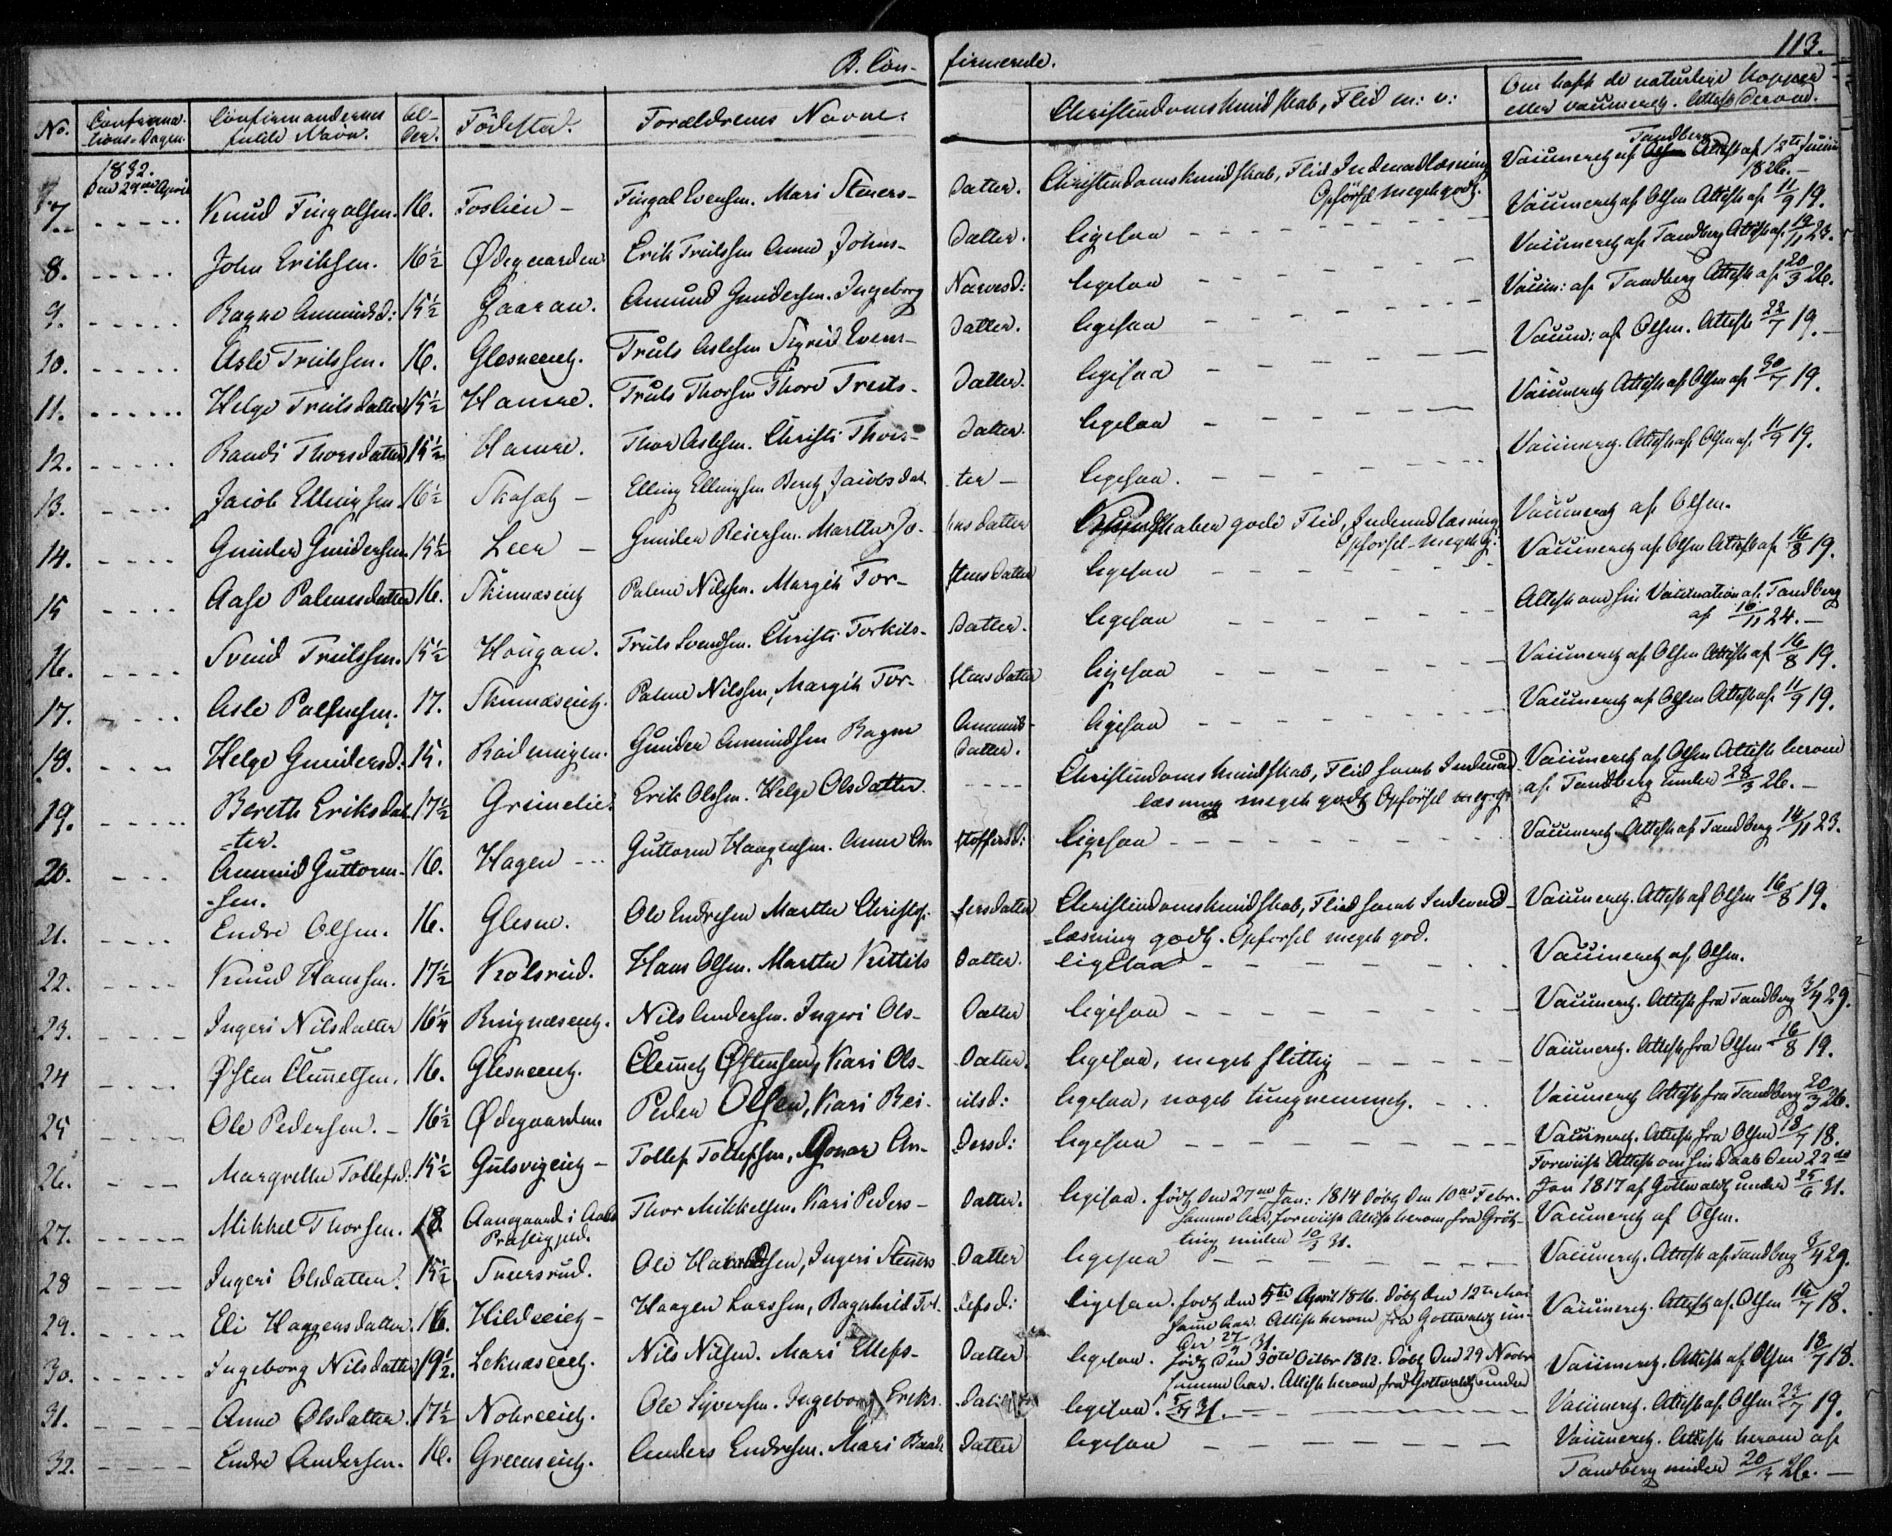 B. Con- firmerede. 113.
No. Confirma- tions-Dagen. Confirmandernes fulde Navn. Al- der. Födested. Forældrenes Navne. Christendomskundskab, Flid m: v: Om havt de naturlige Kopper eller vaccineret. Attest derom.
1832. Den 29de April
7. Knud Fingalsen. 16. Foslien - Fingal Evensen. Mari Steners- Datter. Christendomskundskab, Flid Indenadlæsning Opförsel meget godt. Vaccineret af Tandberg Attest af 12te Junii 1826.-
8. John Eriksen. 16½ Ødegaarden Erik Trulssen Anne Johns- Datter. ligesaa Vaccineret af Olsen Attest af 11/9 19.
9. Ragne Amundsd: 15½ Gaaran. Amund Gundersen. Ingeborg Narvesd: ligesaa Vaccineret af Tandberg Attest af 19/11 23.
10. Asle Trulssen. 16. Glesneeiet. Truls Aslesen Sigrid Evens- Datter. ligesaa Vaccin: af Tandberg Attest af 20/3 26.
11. Helge Trulsdatter 15½ Hamre. Truls Thorsen Thore Truls- Datter. ligesaa Vaccin: af Olsen. Attest 22/7 19.-
12. Randi Thorsdatter 15½ Hamre. Thor Aslesen. Christi Thors- Datter. ligesaa Vaccineret Attest af Olsen af 30/7 19.
13. Jacob Ellingsen 16½ - Elling Ellingsen Beret Jacobsdat- ter - ligesaa. Vaccineret. Attest af Olsen af 11/9 19.
14. Gunder Gundersen 15½ Leer - Gunder Reiersen. Marthe Jo- hnsdatter Kundskaber gode Flid, Indenadlæsning Opförsel meget g: Vaccineret af Olsen.
15 Aase Palmesdatter 16. Skinnæseiet Palme Nilssen. Margit Tor- stensdatter ligesaa Vaccineret af Olsen Attest af 16/8 19.
16. Svend Trulssen. 15½ Hougan. Truls Svendsen. Christi Torkils- Datter. ligesaa Attest om sin Vaccination af Tandberg af 16/11 24.-
17. Asle Palmesen. 17. Skinnæseiet. Palme Nilssen, Margit Tor- stensdatter ligesaa Vaccineret af Olsen Attest af 16/8 19.
18. Helge Gundersd. 15. Gunder Amundsen Ragne Amunds- Datter. ligesaa Vaccineret af Olsen Attest af 11/9 19.
19. Bereth Eriksdat- ter. 17½ Grimelie. Erik Olssen. Helge Olsdatter. Christendomskundskab, Flid samt Indenad- læsning meget godt Opförsel Vaccineret af Olsen Attest herom af Tandberg under 28/3 26.-
20. Amund Guttorm- sen. 16. Hagen Guttorm Haagensen. Anne Chr- stoffersd: ligesaa Vaccineret Attest af Tandberg 14/11 23.
21. Endre Olsen. 16. Glesne. Ole Endresen Marthe Christof- fersdatter Christendomskundskab, Flid samt Indenad- læsning godt. Opförsel meget god. Vaccineret. Attest af Olsen 16/8 19.
22. Knud Hanssen. 17½ Kolsrud. Hans Olsen. Marthe Kittils Datter. ligesaa Vaccineret af Olsen.
23. Ingeri Nilsdatter 16¼ Ringnæseiet. Nils Andersen. Ingeri Ols- Datter ligesaa Vaccineret. Attest fra Tandberg 3/4 29.
24 Østen Clemetsen. 16. Glesneeiet. Clemet Østensen, Kari Ols- Datter. ligesaa, meget flittig Vaccineret. Attest fra Olsen 16/8 19.
25 Ole Pedersen. - 16½ Ødegaarden. Peder Olsen, Kari Rei- ersd: ligesaa, noget tungnemmet. Vaccineret Attest fra Tandberg 20/3 26.
26. Margrethe Tollefsd: 15½ Gulsvigeiet - Tollef Tollefsen, Gonar An- dersd: ligesaa Vaccineret. Attest fra Olsen 18/7 18.
27. Mikkel Thorsen. 18. Aangaard i Aals Præstegjeld. Thor Mikkelsen. Kari Peders- Datter. ligesaa. födt den 27de Jan: 1814 döbt den 10de Febr. samme Aar, foreviist Attest herom fra Gröt- ting under 10/3 31. Foreviist Attest om sin Daab den 22de Jan 1817 af Gottwaldt under 25/6 31. Vaccineret af Olsen.
28 Ingeri Olsdatter. 15½ Sneersrud. Ole Haraldsen, Ingeri Steners Datter ligesaa Vaccineret. Attest af Tandberg 8/4 29.
29. Eli Haagensdatter. 16. Hildeeiet - Haagen Larssen, Ragnhild Tol- lefsd: ligesaa. födt den 5te April 1816. döbt den 12te Mai samme Aar. Attest herom fra Gottwaldt un- der 27/4 31. Vaccineret. Attest af Olsen 16/7 18.
30. Ingeborg Nilsdatter 19½. Leknæseiet. Nils Nilsen. Mari Ellefs- Datter ligesaa. födt den 30te Octbr 1812. döbt den 29 Novbr samme Aar. Attest herom fra Gottwaldt under 5/4 31. Vaccineret. Attest af Olsen 18/7 18.
31. Anne Olsdatter. 17½ Noreeiet. Ole Syversen. Ingeborg Eriks. Datter ligesaa. Vaccineret. Attest af Olsen 22/7 19.
32. Endre Andersen. 16. Greenseiet. Anders Endresen. Mari Baards Datter ligesaa Vaccineret. Attest herom af Tandberg under 20/3 26.-